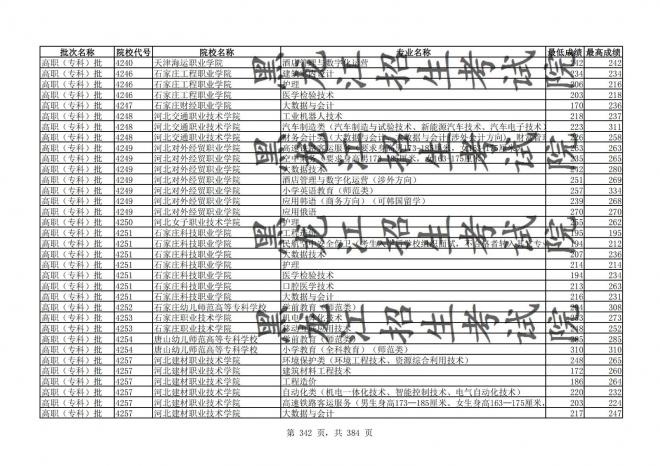 批次名称 院校代号 院校名称 专业名称 最低成绩 最高成绩
高职（专科）批 4240 天津海运职业学院 酒店管理与数字化运营 242 242
高职（专科）批 4246 石家庄工程职业学院 234 234
高职（专科）批 4246 石家庄工程职业学院 护理 206 216
高职（专科）批 4246 石家庄工程职业学院 医学检验技术 203 218
高职（专科）批 4247 石家庄财经职业学院 大数据与会计 170 236
高职（专科）批 4248 河北交通职业技术学院 工业机器人技术 218 237
高职（专科）批 4248 河北交通职业技术学院 汽车制造类（汽车制造与试验技术、新能源汽车技术、汽车电子技术） 223 311
高职（专科）批 4248 河北交通职业技术学院 财务会计类（大数据与会计、大数据与会计(涉外会计方向)、财富管 226 258
高职（专科）批 4249 河北对外经贸职业学院 高速铁路客运服务（要求身高男173—185厘米，女163—175厘米） 253 263
高职（专科）批 4249 河北对外经贸职业学院 空中乘务（要求身高男173—185厘米，女163—175厘米） 235 265
高职（专科）批 4249 河北对外经贸职业学院 大数据技术 232 280
高职（专科）批 4249 河北对外经贸职业学院 酒店管理与数字化运营（涉外方向） 251 269
高职（专科）批 4249 河北对外经贸职业学院 小学英语教育（师范类） 257 334
高职（专科）批 4249 河北对外经贸职业学院 应用韩语（商务方向）（可韩国留学） 239 268
高职（专科）批 4249 河北对外经贸职业学院 应用俄语 270 270
高职（专科）批 4250 河北女子职业技术学院 护理 255 262
高职（专科）批 4251 石家庄科技职业学院 工程造价 195 195
高职（专科）批 4251 石家庄科技职业学院 194 212
高职（专科）批 4251 石家庄科技职业学院 大数据技术 207 236
高职（专科）批 4251 石家庄科技职业学院 护理 214 214
高职（专科）批 4251 石家庄科技职业学院 医学检验技术 194 234
高职（专科）批 4251 石家庄科技职业学院 口腔医学技术 213 263
高职（专科）批 4251 石家庄科技职业学院 大数据与会计 216 231
高职（专科）批 4252 石家庄幼儿师范高等专科学校 学前教育（师范类） 308
高职（专科）批 4253 石家庄职业技术学院 机电一体化技术 273
高职（专科）批 4253 石家庄职业技术学院 移动互联应用技术 248 252
高职（专科）批 4254 唐山幼儿师范高等专科学校 学前教育（师范类） 285 285
高职（专科）批 4254 唐山幼儿师范高等专科学校 小学教育（全科教育）（师范类） 310 310
高职（专科）批 4257 河北建材职业技术学院 环境保护类（环境工程技术、资源综合利用技术） 248 265
高职（专科）批 4257 河北建材职业技术学院 建筑材料工程技术 172 260
高职（专科）批 4257 河北建材职业技术学院 工程造价 186 264
高职（专科）批 4257 河北建材职业技术学院 自动化类（机电一体化技术、智能控制技术、电气自动化技术） 220 232
高职（专科）批 4257 河北建材职业技术学院 高速铁路客运服务（男生身高173—185厘米、女生身高163—175厘米， 203 224
高职（专科）批 4257 河北建材职业技术学院 大数据与会计 217 247
第 342 页，共 384 页
黑龙江招生考试院
黑龙江招生考试院
黑龙江招生考试院